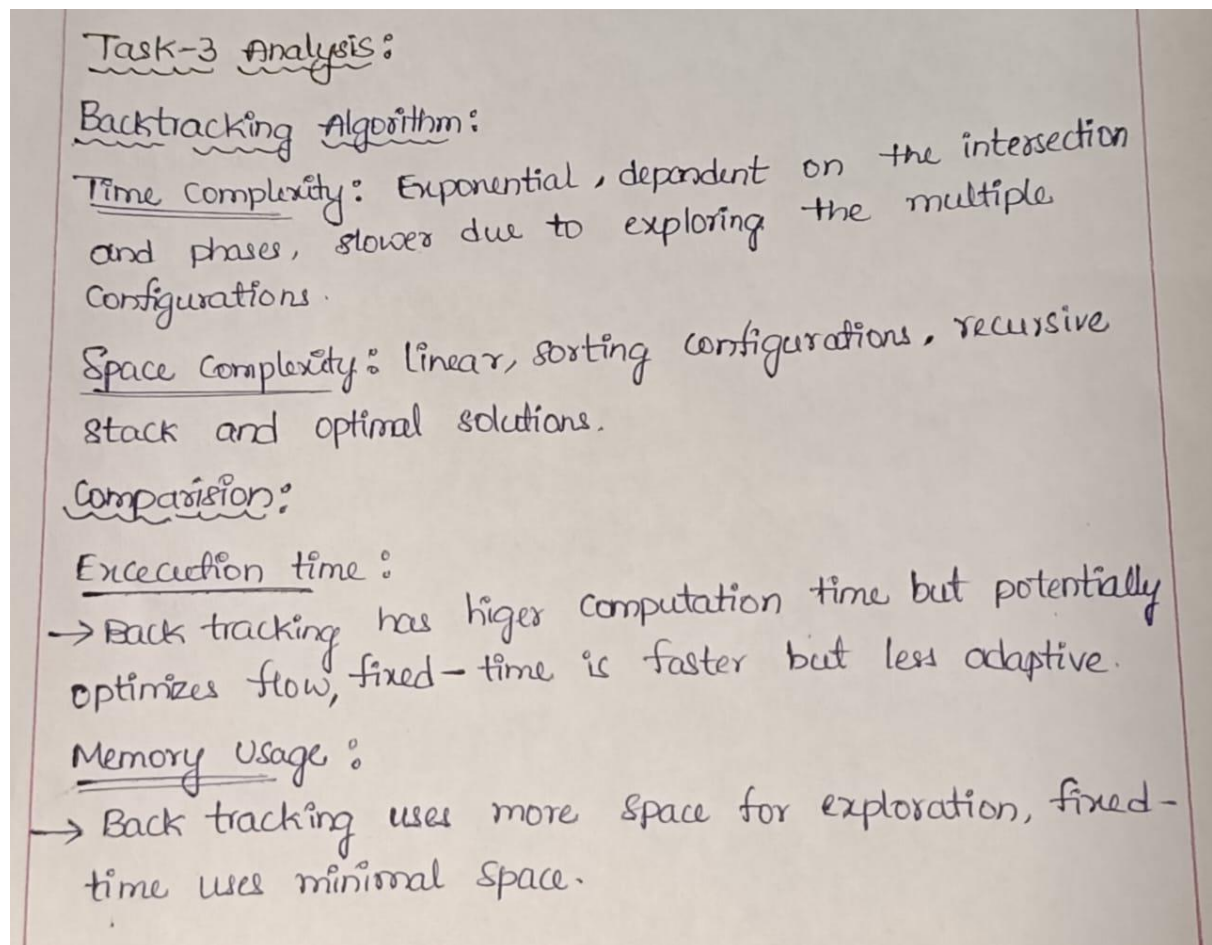 Task-3 Analysis:
Backtracking Algorithm:
Time Complexity: Exponential, dependent on the intersection
and phases, slower due to exploring the multiple
Configurations.
Space Complexity: linear, sorting configurations, recursive
stack and optimal solutions.
Comparision:
Excecution time:
→ Back tracking has higer computation time but potentially
optimizes flow, fixed-time is faster but less adaptive.
Memory Usage:
→ Back tracking uses more space for exploration, fixed-
time uses minimal space.